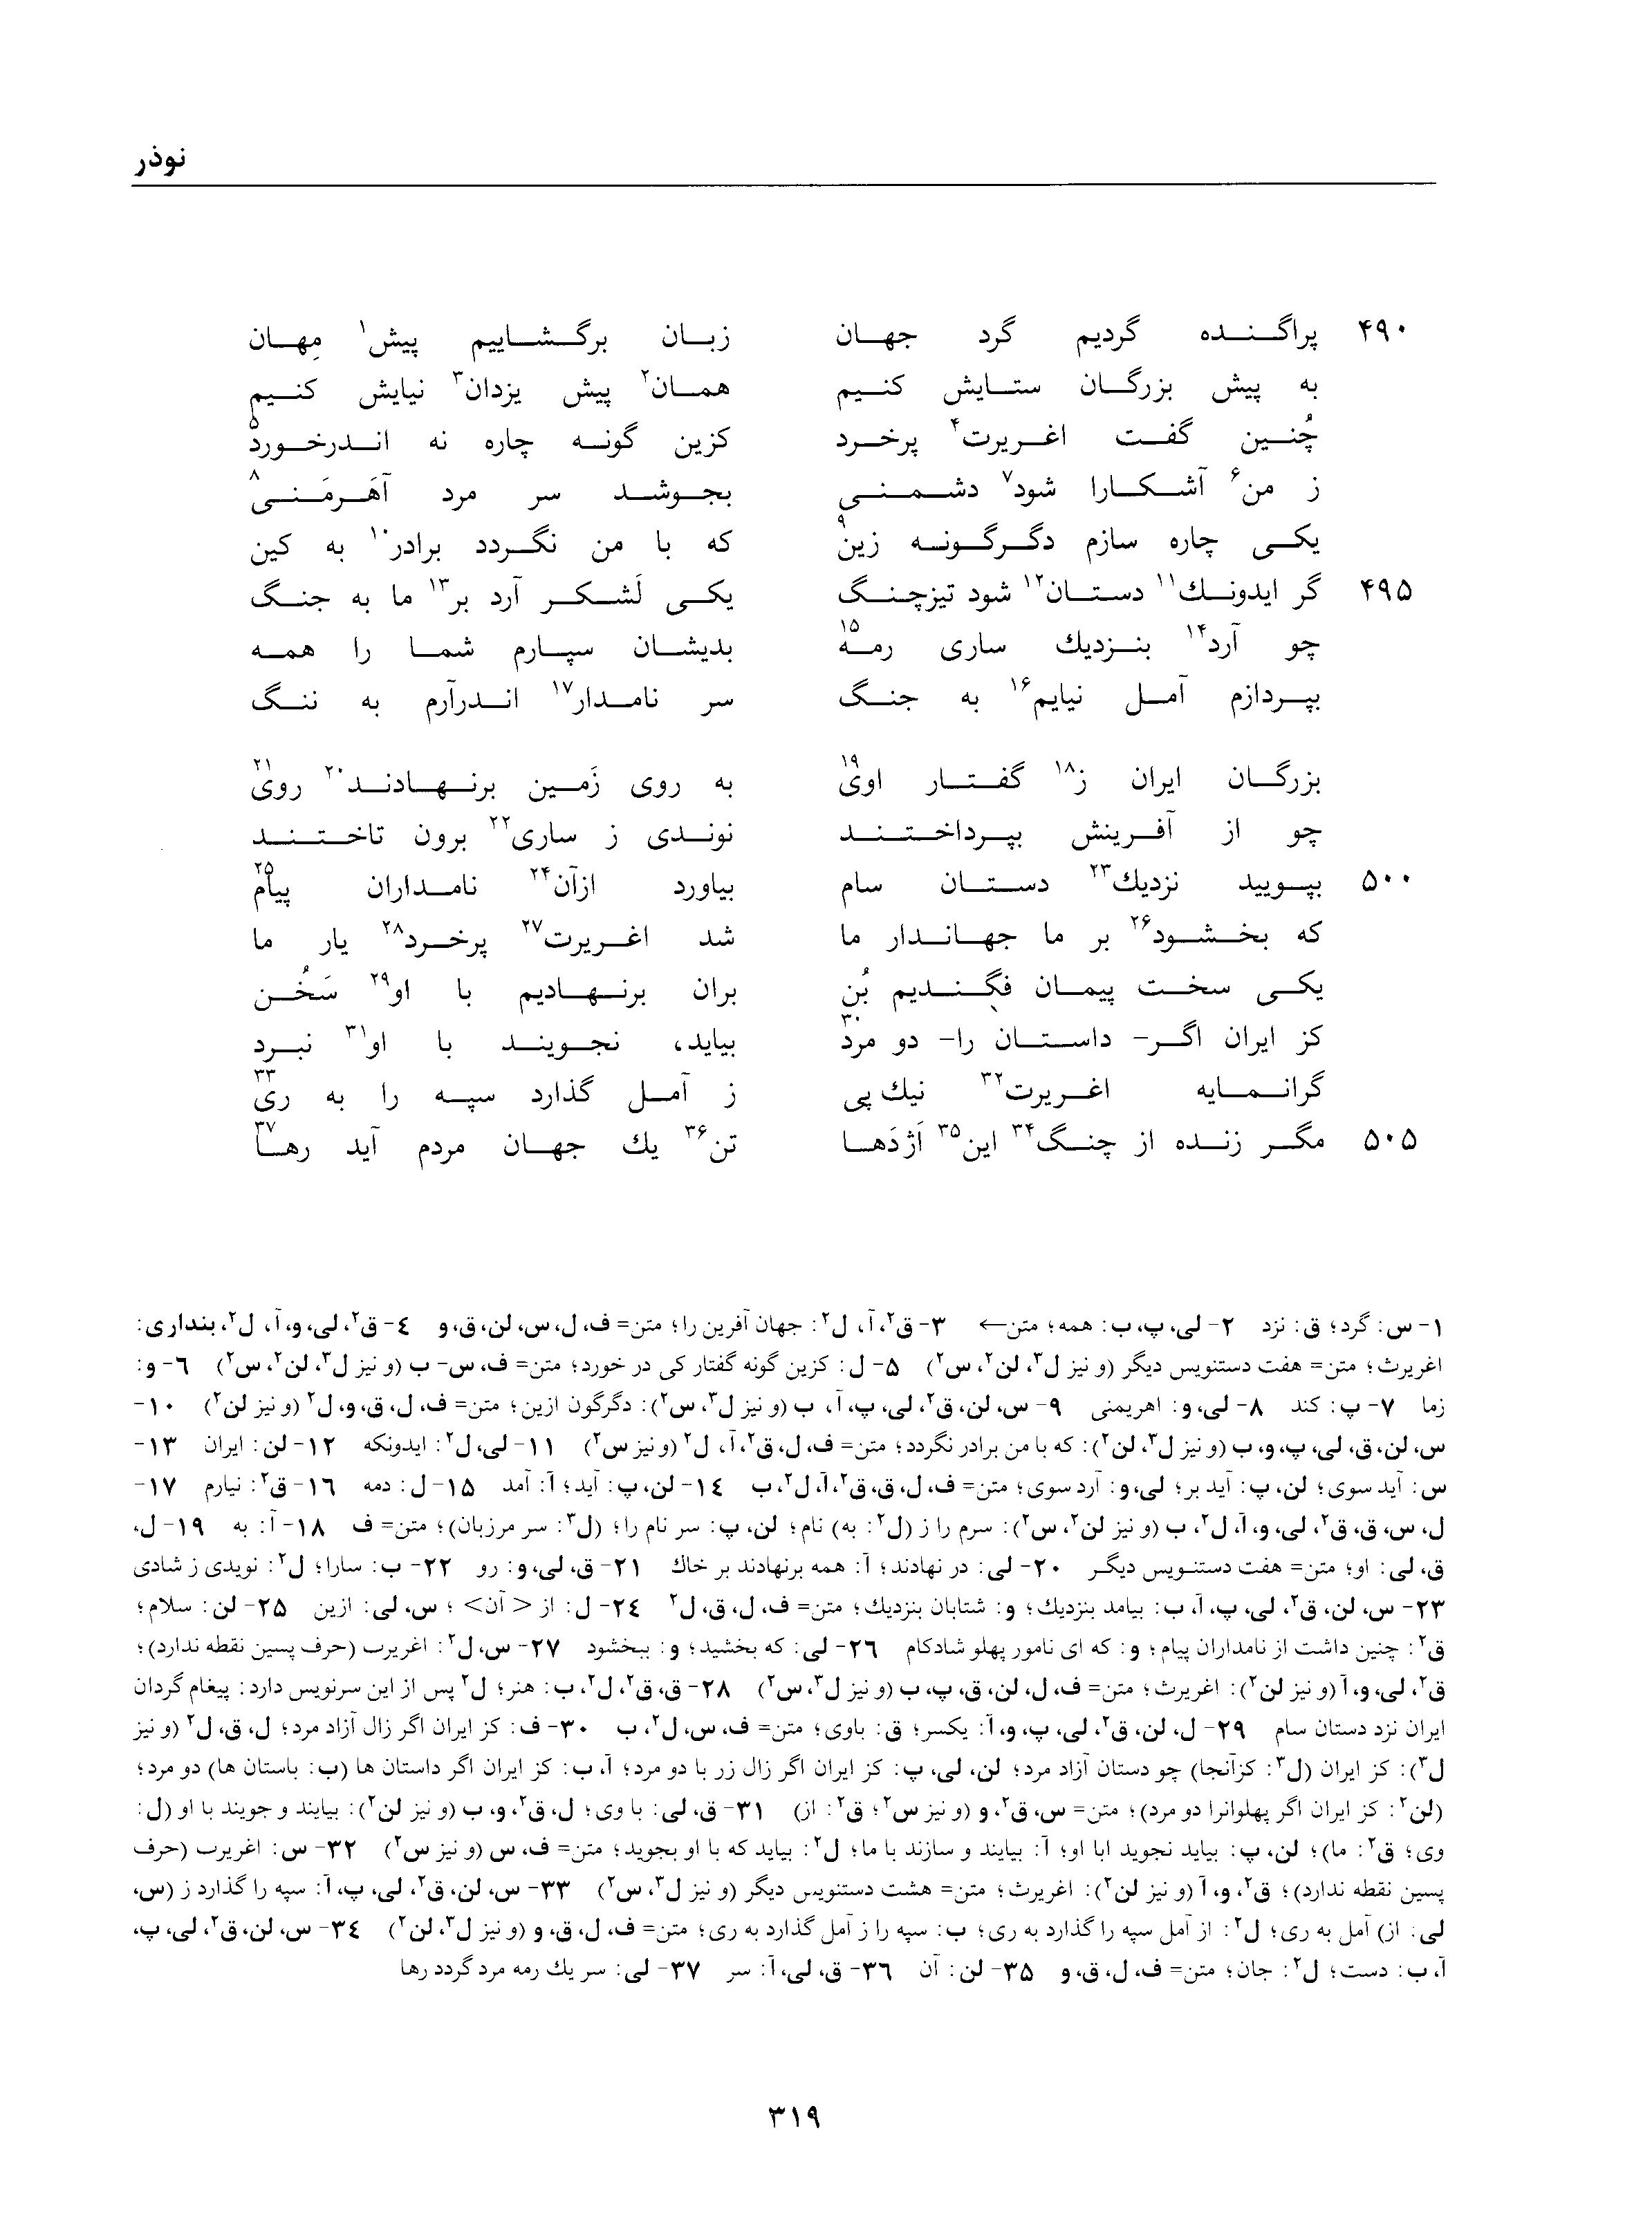 نوذر
۴۹۰ پراگنده گردیم گرد جهان زبان برگشاییم پیش¹ مِهان
به پیش بزرگان ستایش کنیم همان² پیش یزدان³ نیایش کنیم
چُنین گفت اغریرت⁴ پرخرد کزین گونه چاره نه اندرخورد⁵
ز من⁶ آشکارا شود⁷ دشمنی بجوشد سر مرد آهَرمَنی⁸
یکی چاره سازم دگرگونه زین⁹ که با من نگردد برادر¹⁰ به کین
۴۹۵ گر ایدونك¹¹ دستان¹² شود تیزچنگ یکی لَشکر آرد بر¹³ ما به جنگ
چو آرد¹⁴ بنزدیك ساری رمه¹⁵ بدیشان سپارم شما را همه
بپردازم آمل نیایم¹⁶ به جنگ سر نامدار¹⁷ اندرآرم به ننگ
بزرگان ایران ز¹⁸ گفتار اوی¹⁹ به روی زَمین برنهادند²⁰ روی²¹
چو از آفرینش بپرداختند نوندی ز ساری²² برون تاختند
۵۰۰ بپویید نزدیك²³ دستان سام بیاورد ازآن²⁴ نامداران پیام²⁵
که بخشود²⁶ بر ما جهاندار ما شد اغریرت²⁷ پرخرد²⁸ یار ما
یکی سخت پیمان فگندیم بُن بران برنهادیم با او²⁹ سَخُن
کز ایران اگر- داستان را- دو مرد³⁰ بیاید، نجویند با او³¹ نبرد
گرانمایه اغریرت³² نیك پی ز آمل گذارد سپه را به ری³³
۵۰۵ مگر زنده از چنگ³⁴ این³⁵ اَژدَها تن³⁶ یك جهان مردم آید رها³⁷
۱- س: گرد؛ ق: نزد ۲- لی، پ، ب: همه؛ متن← ۳- ق²، آ، ل²: جهان آفرین را؛ متن= ف، ل، س، لن، ق، و ۴- ق²، لی، و، آ، ل²، بنداری:
اغریرث؛ متن= هفت دستنویس دیگر (و نیز ل³، لن²، س²) ۵- ل: کزین گونه گفتار کی در خورد؛ متن= ف، س- ب (و نیز ل³، لن²، س²) ۶- و:
زما ۷- پ: کند ۸- لی، و: اهریمنی ۹- س، لن، ق²، لی، پ، آ، ب (و نیز ل³، س²): دگرگون ازین؛ متن= ف، ل، ق، و، ل² (و نیز لن²) ۱۰-
س، لن، ق، لی، پ، و، ب (و نیز ل³، لن²): که با من برادر نگردد؛ متن= ف، ل، ق²، آ، ل² (و نیز س²) ۱۱- لی، ل²: ایدونکه ۱۲- لن: ایران ۱۳-
س: آید سوی؛ لن، پ: آید بر؛ لی، و: آرد سوی؛ متن= ف، ل، ق، ق²، آ، ل²، ب ۱۴- لن، پ: آید؛ آ: آمد ۱۵- ل: دمه ۱۶- ق²: نیارم ۱۷-
ل، س، ق، ق²، لی، و، آ، ل²، ب (و نیز لن²، س²): سرم را ز (ل²: به) نام؛ لن، پ: سر نام را؛ (ل³: سر مرزبان)؛ متن= ف ۱۸- آ: به ۱۹- ل،
ق، لی: او؛ متن= هفت دستنویس دیگر ۲۰- لی: در نهادند؛ آ: همه برنهادند بر خاك ۲۱- ق، لی، و: رو ۲۲- ب: سارا؛ ل²: نویدی ز شادی
۲۳- س، لن، ق²، لی، پ، آ، ب: بیامد بنزدیك؛ و: شتابان بنزدیك؛ متن= ف، ل، ق، ل² ۲۴- ل: از < آن> ؛ س، لی: ازین ۲۵- لن: سلام؛
ق²: چنین داشت از نامداران پیام؛ و: که ای نامور پهلو شادکام ۲۶- لی: که بخشید؛ و: ببخشود ۲۷- س، ل²: اغریرب (حرف پسین نقطه ندارد)؛
ق²، لی، و، آ (و نیز لن²): اغریرث؛ متن= ف، ل، لن، ق، پ، ب (و نیز ل³، س²) ۲۸- ق، ق²، ل²، ب: هنر؛ ل² پس از این سرنویس دارد: پیغام گردان
ایران نزد دستان سام ۲۹- ل، لن، ق²، لی، پ، و، آ: یکسر؛ ق: باوی؛ متن= ف، س، ل²، ب ۳۰- ف: کز ایران اگر زال آزاد مرد؛ ل، ق، ل² (و نیز
ل³): کز ایران (ل³: کزآنجا) چو دستان آزاد مرد؛ لن، لی، پ: کز ایران اگر زال زر با دو مرد؛ آ، ب: کز ایران اگر داستان ها (ب: باستان ها) دو مرد؛
(لن²: کز ایران اگر پهلوانرا دو مرد)؛ متن= س، ق²، و (و نیز س²؛ ق²: از) ۳۱- ق، لی: با وی؛ ل، ق²، و، ب (و نیز لن²): بیایند و جویند با او (ل:
وی؛ ق²: ما)؛ لن، پ: بیاید نجوید ابا او؛ آ: بیایند و سازند با ما؛ ل²: بیاید که با او بجوید؛ متن= ف، س (و نیز س²) ۳۲- س: اغریرب (حرف
پسین نقطه ندارد)؛ ق²، و، آ (و نیز لن²): اغریرث؛ متن= هشت دستنویس دیگر (و نیز ل³، س²) ۳۳- س، لن، ق²، لی، پ، آ: سپه را گذارد ز (س،
لی: از) آمل به ری؛ ل²: از آمل سپه را گذارد به ری؛ ب: سپه را ز آمل گذارد به ری؛ متن= ف، ل، ق، و (و نیز ل³، لن²) ۳۴- س، لن، ق²، لی، پ،
آ، ب: دست؛ ل²: جان؛ متن= ف، ل، ق، و ۳۵- لن: آن ۳۶- ق، لی، آ: سر ۳۷- لی: سر یك رمه مرد گردد رها
۳۱۹